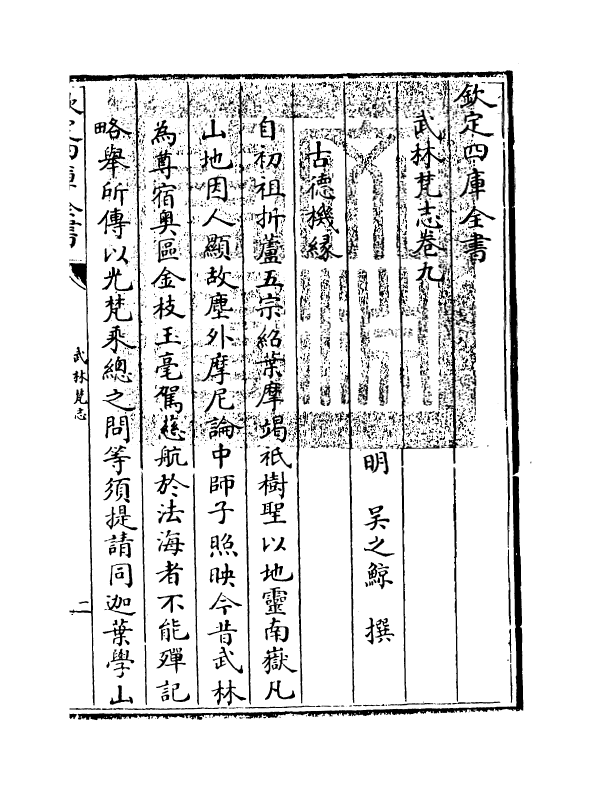 欽定四庫全書
武林梵志卷九
明 吳之鯨 撰
古德機緣
自初祖折蘆五宗紹葉摩竭祇樹聖以地靈南嶽凡
山地因人顯故塵外摩尼論中師子照映今昔武林
為尊宿奧區金枝玉毫駕慈航於法海者不能殫記
略舉所傳以光梵乘總之問等須提請同迦葉學山
欽定四庫全書
武林梵志
二